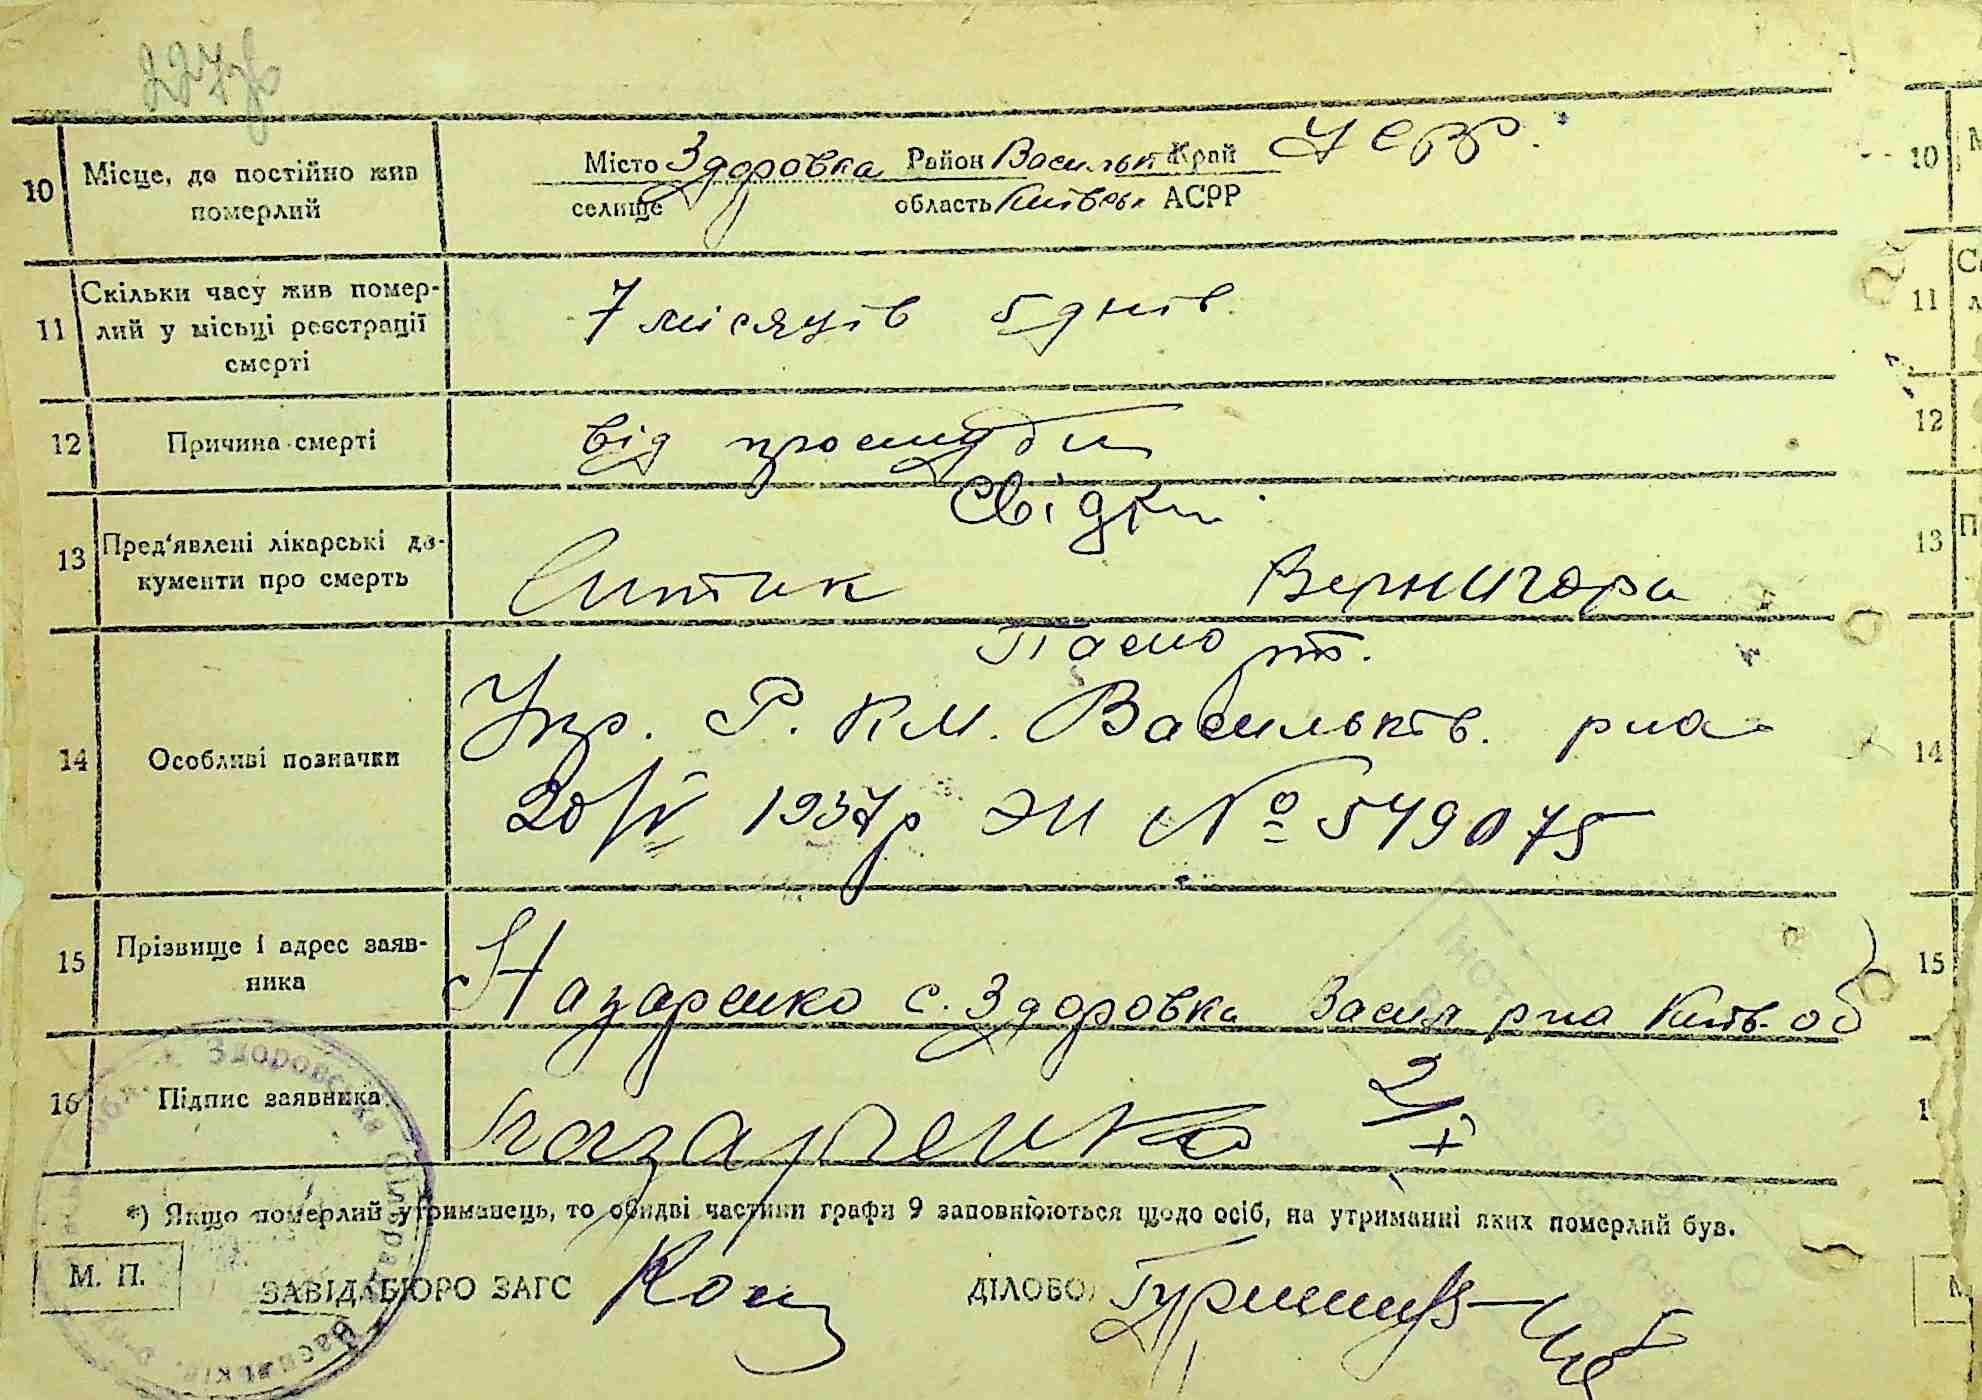 10 Місце, де постійно жив померлий
Місто Здоровка Район Васильк Край УСРР.
селище область Київськ АСРР
11 Скільки часу жив помер-
лий у місьці реєстрації
смерті
7 місяців 5 днів.
12 Причина смерті
від простуди
13 Пред'явлені лікарські до-
кументи про смерть
Свідки
Ситик Вернигора
14 Особливі позначки
Паспорт.
Упр. Р. К. М. Васильків. р-на
20/IV 1937р ЭИ № 549075
15 Прізвище і адрес заяв-
ника
Назаренко с. Здоровка Васил р-на Київ. об
16 Підпис заявника
Назаренко 2/X
*) Якщо померлий утриманець, то обидві частини графи 9 заповнюються щодо осіб, на утриманні яких померлий був.
М. П. ЗАВІД. БЮРО ЗАГС ДІЛОВОД
Здоровська Сільрада
10
11
12
13
14
15